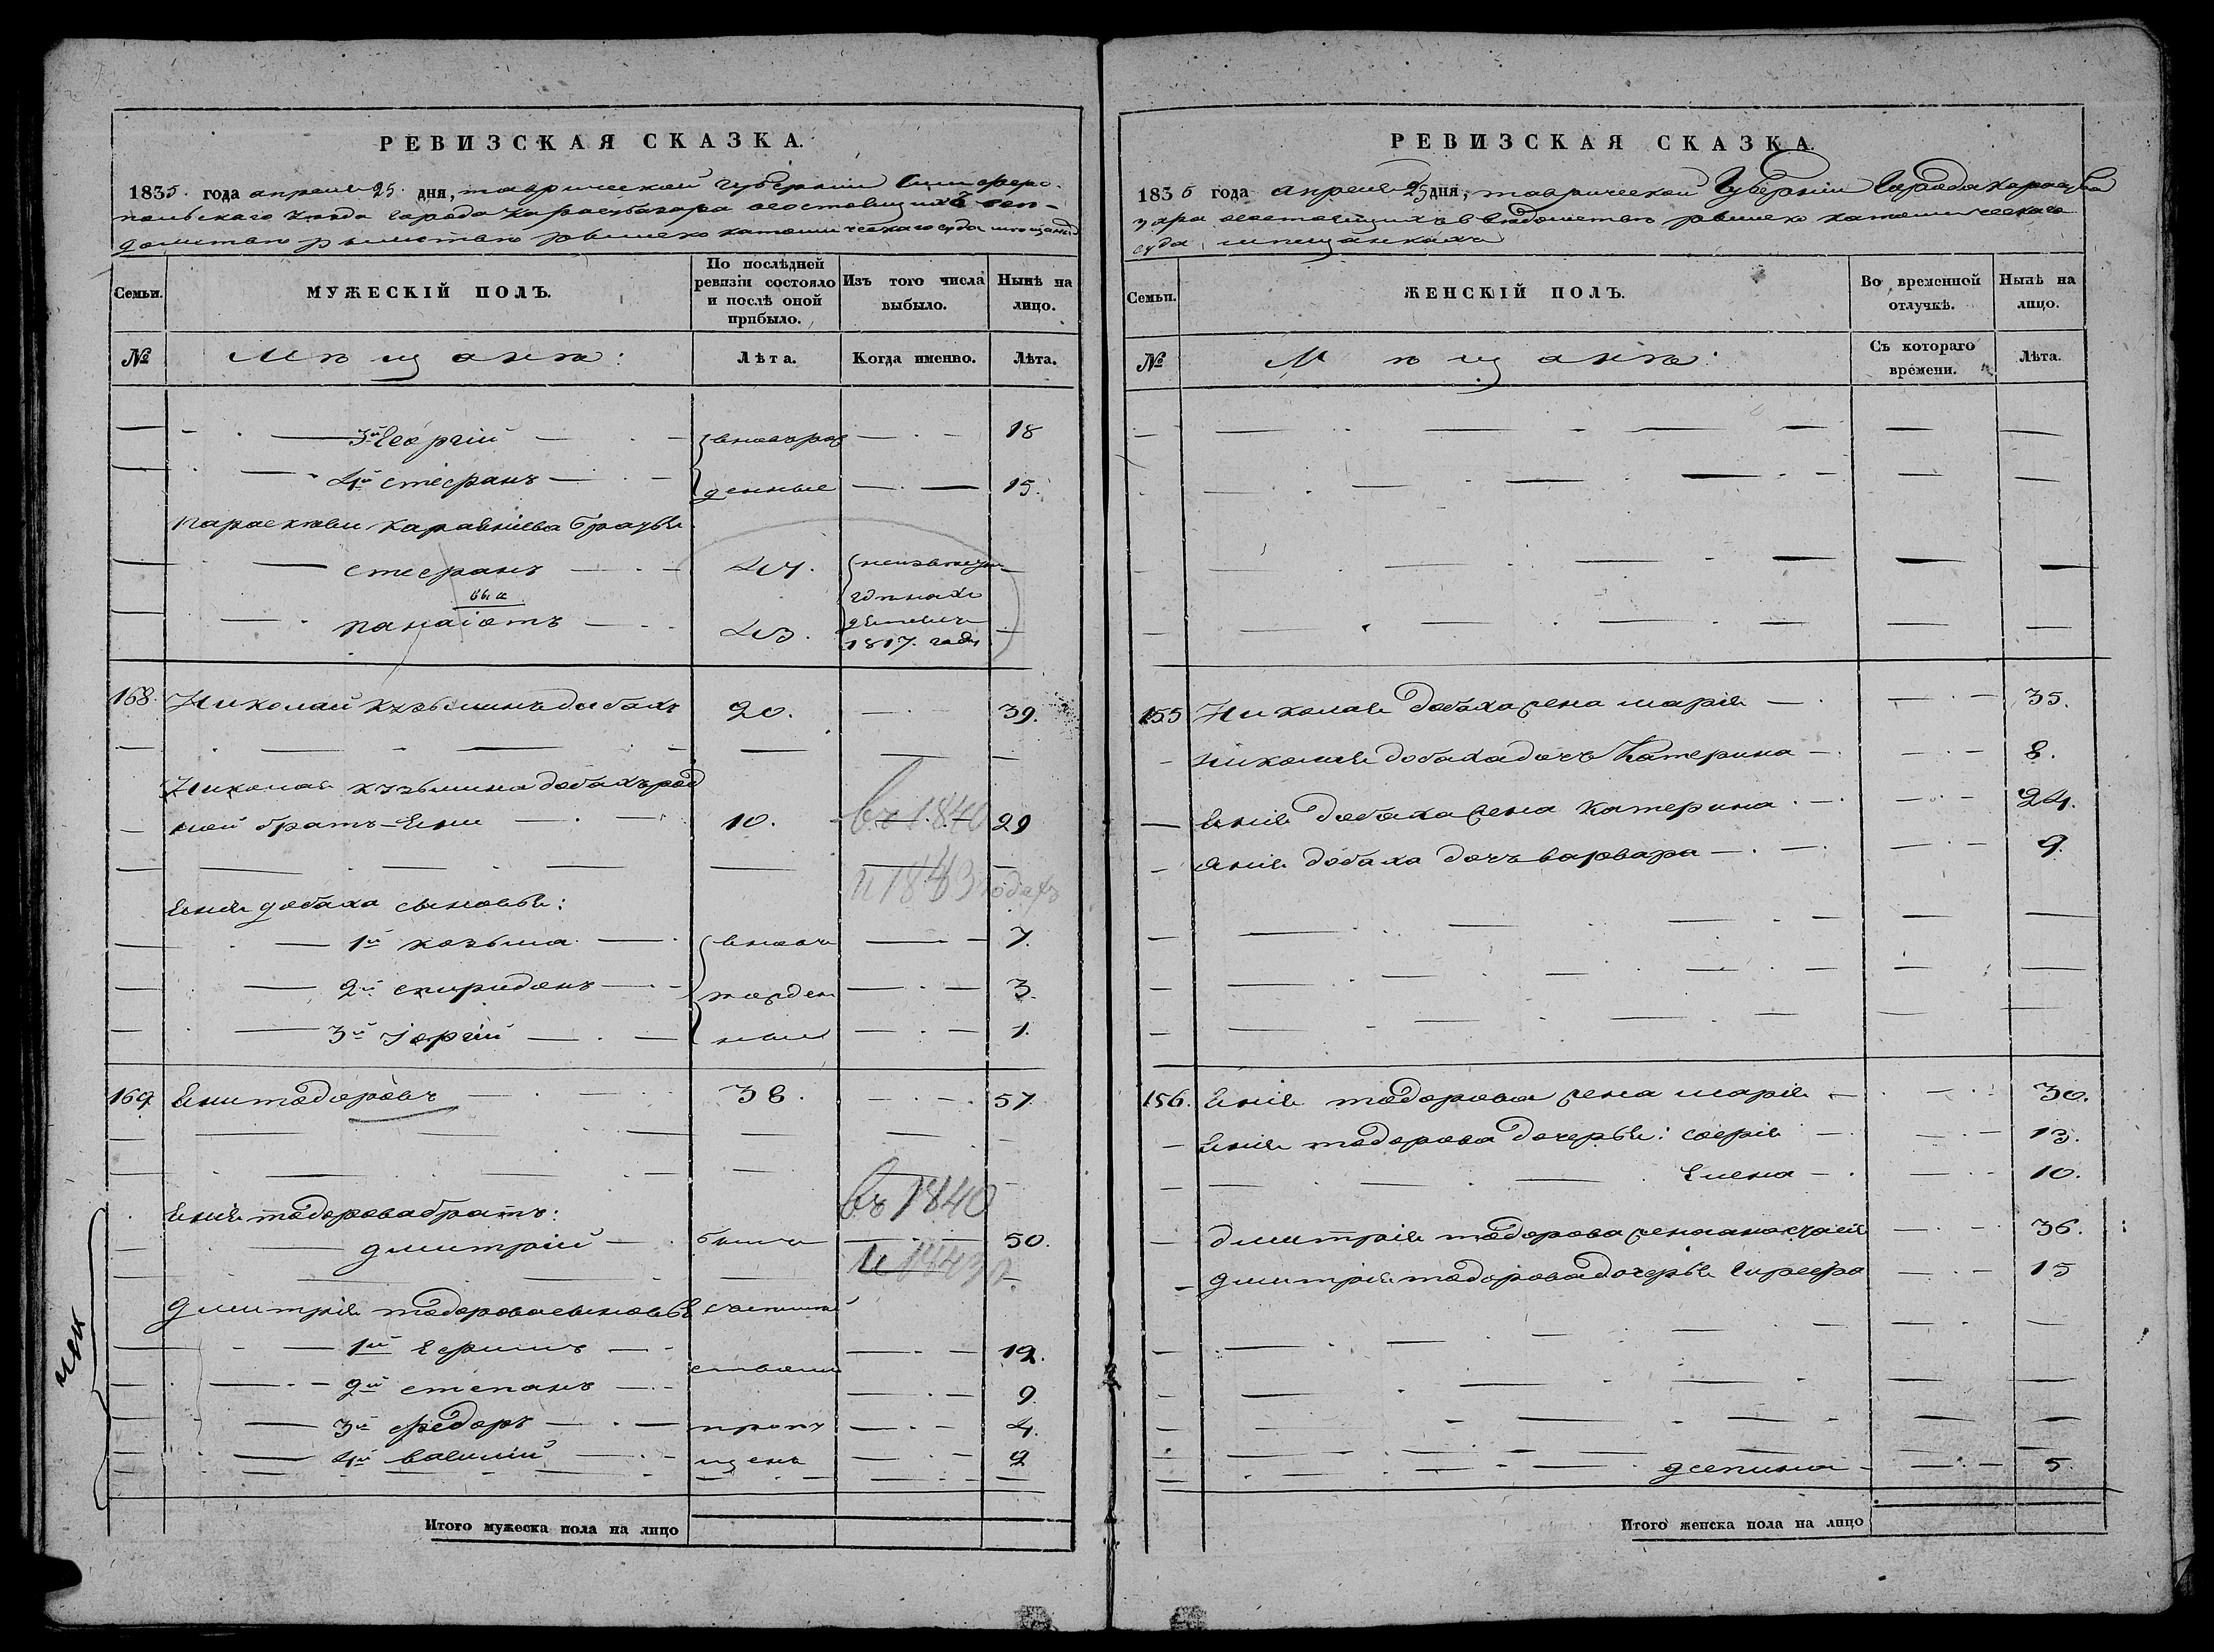 РЕВИЗСКАЯ СКАЗКА.
1835. года апреля 25. дня, таврической губернии Симферо-
польскаго уезда города карасубазара
римско католическаго суда
Семьи.
МУЖЕСКІЙ ПОЛЪ.
По послѣдней ревизіи состояло и послѣ оной прибыло.
Изъ того числа выбыло.
Нынѣ на лицо.
№
Мѣщанѣ:
Лѣта.
Когда именно.
Лѣта.
3й Георгій вновь рож 18
4й стефанъ денные 15.
братья
стефанъ 24. неизвестно
панаіотъ 23. 1817. года
168. Николай дабахъ 20. 39.
Николая дабахъ род
ной братъ Яни 10. въ 1840 29
и 1843 годахъ
Яния добаха сыновья:
1й козьма вновь 7.
2й спиридонъ рожден 3.
3й Іоргій ные 1.
169 Яни тодоровъ 38. 57.
въ 1840
Яния тодорова братъ:
дмитрій 50.
и 1843 г.
дмитрія тодорова сыновья
1й Ефимъ 12.
2й степанъ 9
3й федоръ пропу 4.
4й василій щенъ 2
Итого мужеска пола на лицо
РЕВИЗСКАЯ СКАЗКА.
1835 года апреля 25 дня, таврической Губерніи Города карасуба
зара состоящихъ въ ведомстве римско католическаго
суда мещанкахъ
Семьи.
ЖЕНСКІЙ ПОЛЪ.
Во временной отлучкѣ.
Нынѣ на лицо.
№
Мѣщанѣ:
Съ котораго времени.
Лѣта.
155 Николая добаха жена марія 35.
николая добаха дочь Катерина 8.
Яния добаха жена Катерина 24.
Яния добаха дочь варвара 9.
156. Яния тодорова жена марія 30.
Яния тодорова дочерьи: софія 13.
Елена 10.
дмитрія тодорова жена анастасія 36.
дмитрія тодорова дочерьи 15
5.
Итого женска пола на лицо